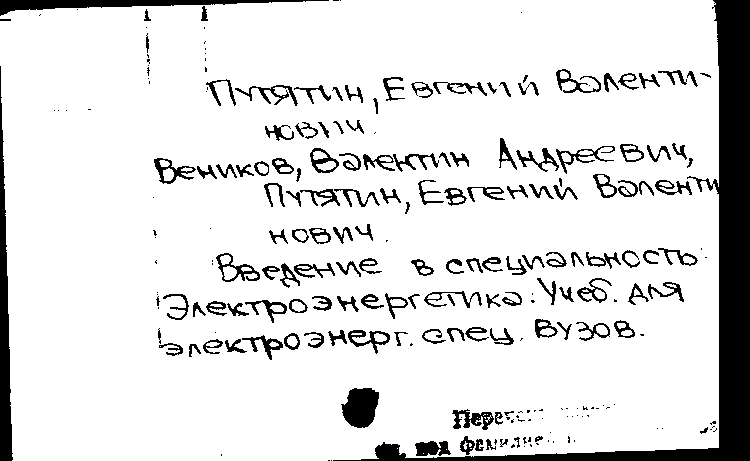 Путятин, Евгений Валенти-
нович.
Веников, Валентин Андреевич,
Путятин, Евгений Валенти
нович.
Введение в специальность:
Электроэнергетика: Учеб. для
электроэнерг. спец. вузов.
см. под фамилией